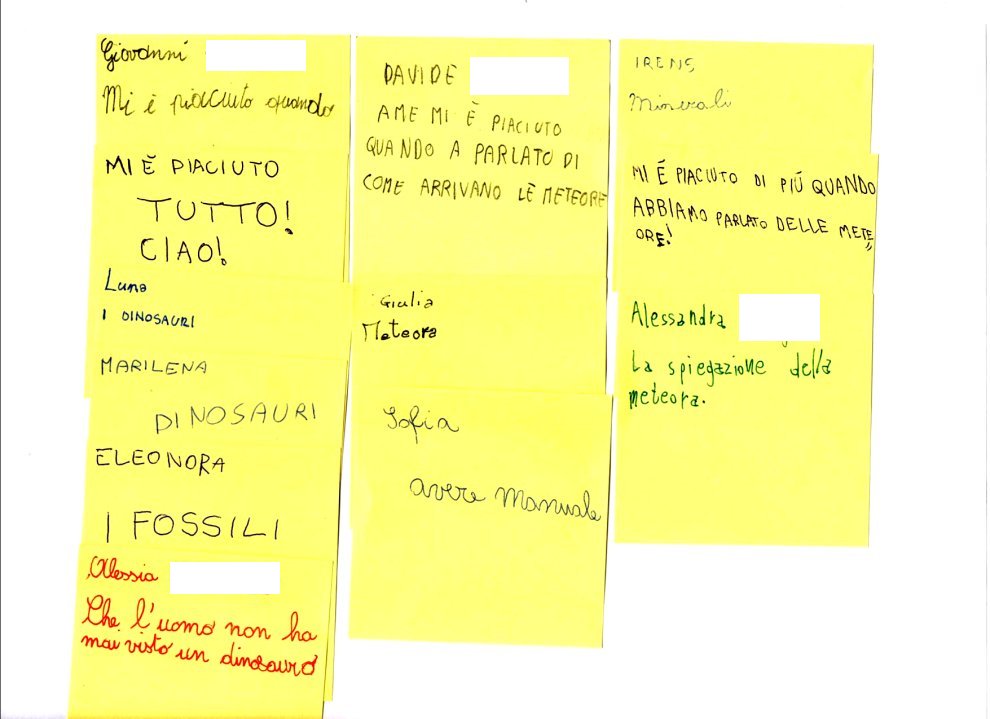 Giovanni
Mi è piaciuto quando
MI È PIACIUTO
TUTTO!
CIAO!
Luna
I DINOSAURI
MARILENA
DINOSAURI
ELEONORA
I FOSSILI
Alessia
Che l'uomo non ha
mai visto un dinosauro
DAVIDE
AME MI È PIACIUTO
QUANDO A PARLATO DI
COME ARRIVANO LE METEORE
Giulia
Meteora
Sofia
avere Manuale
IRENE
Minerali
MI É PIACIUTO DI PIÚ QUANDO
ABBIAMO PARLATO DELLE METE
ORE!
Alessandra
La spiegazione della
meteora.